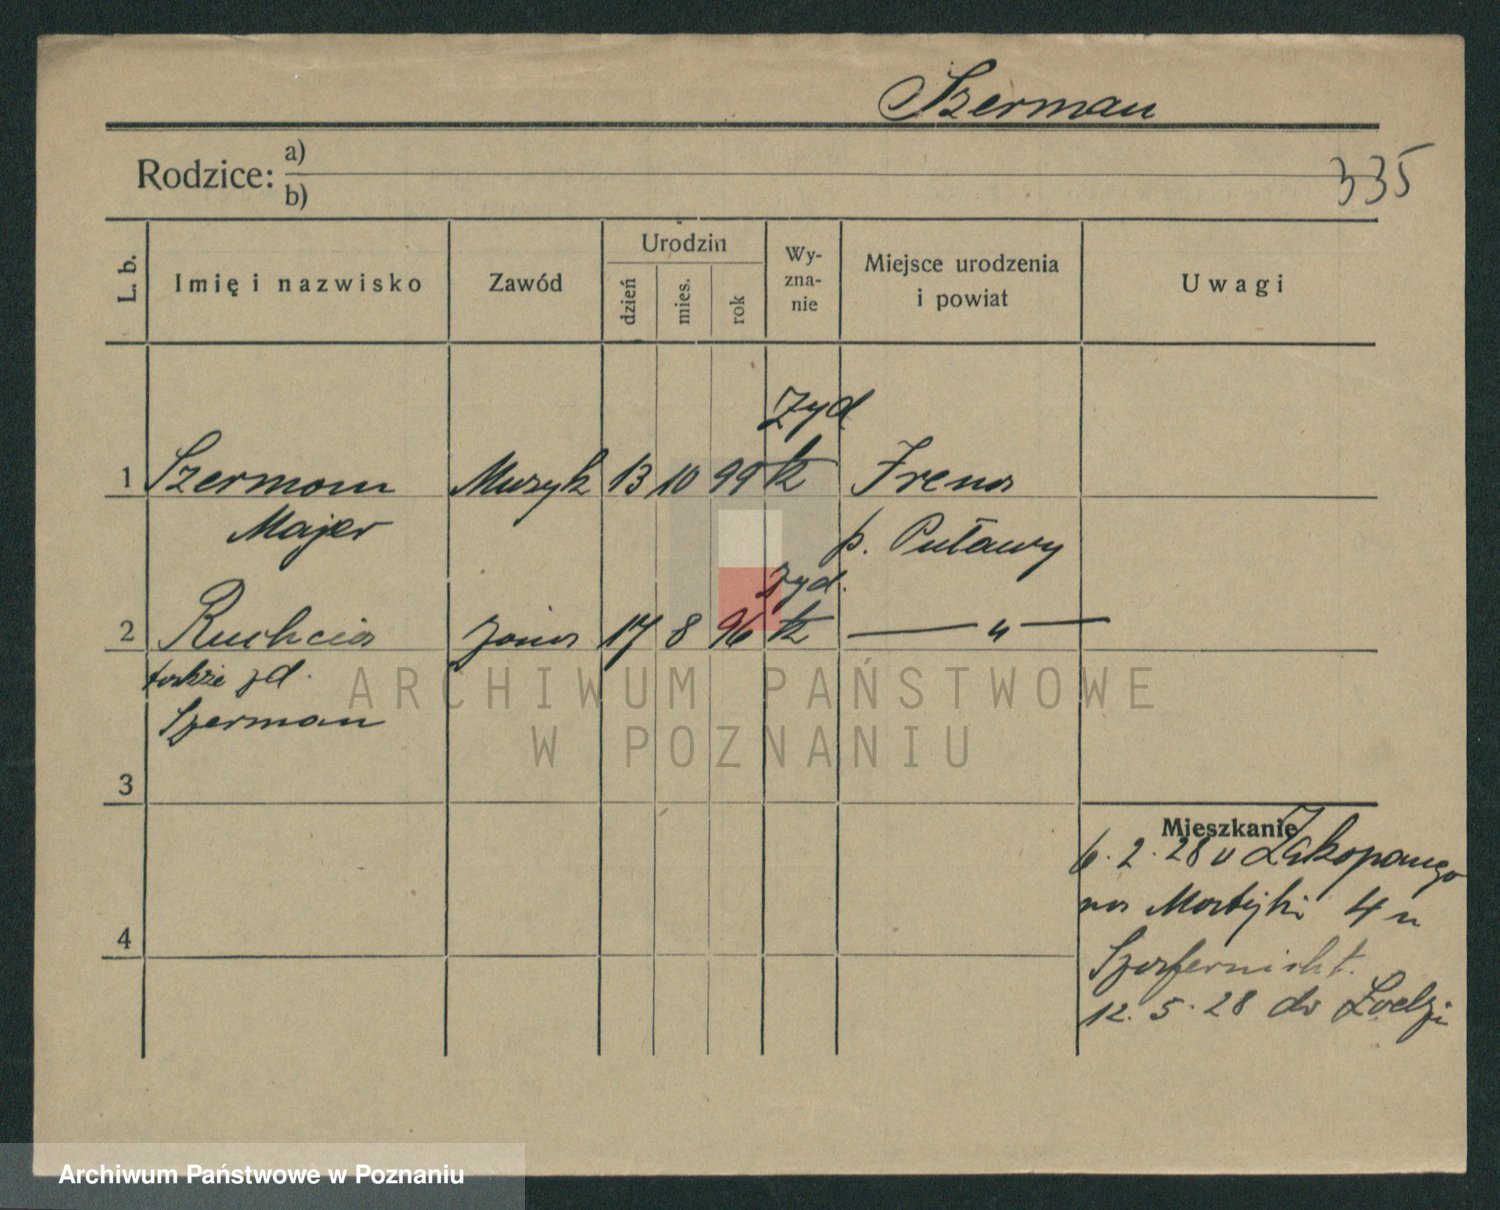 Szerman
335
Rodzice: a)
b)
L. b. Imię i nazwisko Zawód Urodzin dzień mies. rok Wy-zna-nie Miejsce urodzenia i powiat Uwagi
żyd
1 Szerman Muzyk 13 10 99 Irena
Majer p. Puławy
żyd.
2 Ruchcia żona 17 8 96 — " —
także jd.
Szerman
3
Mieszkanie
6. 2. 28 v Zakopanego
na 4 u
12. 5. 28 do Łodzi
4
ARCHIWUM PAŃSTWOWE
W POZNANIU
Archiwum Państwowe w Poznaniu